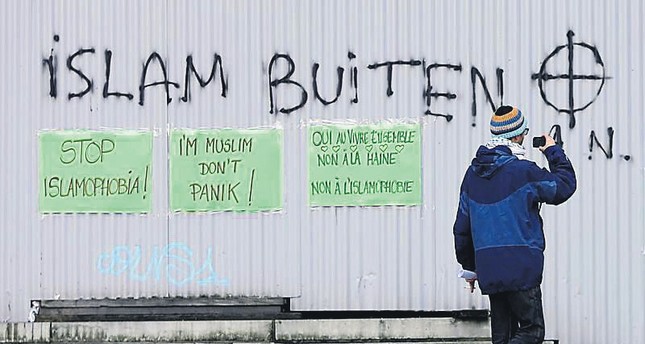 iSLAM BUiTEN
AN.
STOP
ISLAMOPHOBIA!
I'M MUSLIM
DON'T
PANIK!
OUI AU VIVRE ENSEMBLE
NON À LA HAINE
NON À L'ISLAMOPHOBIE